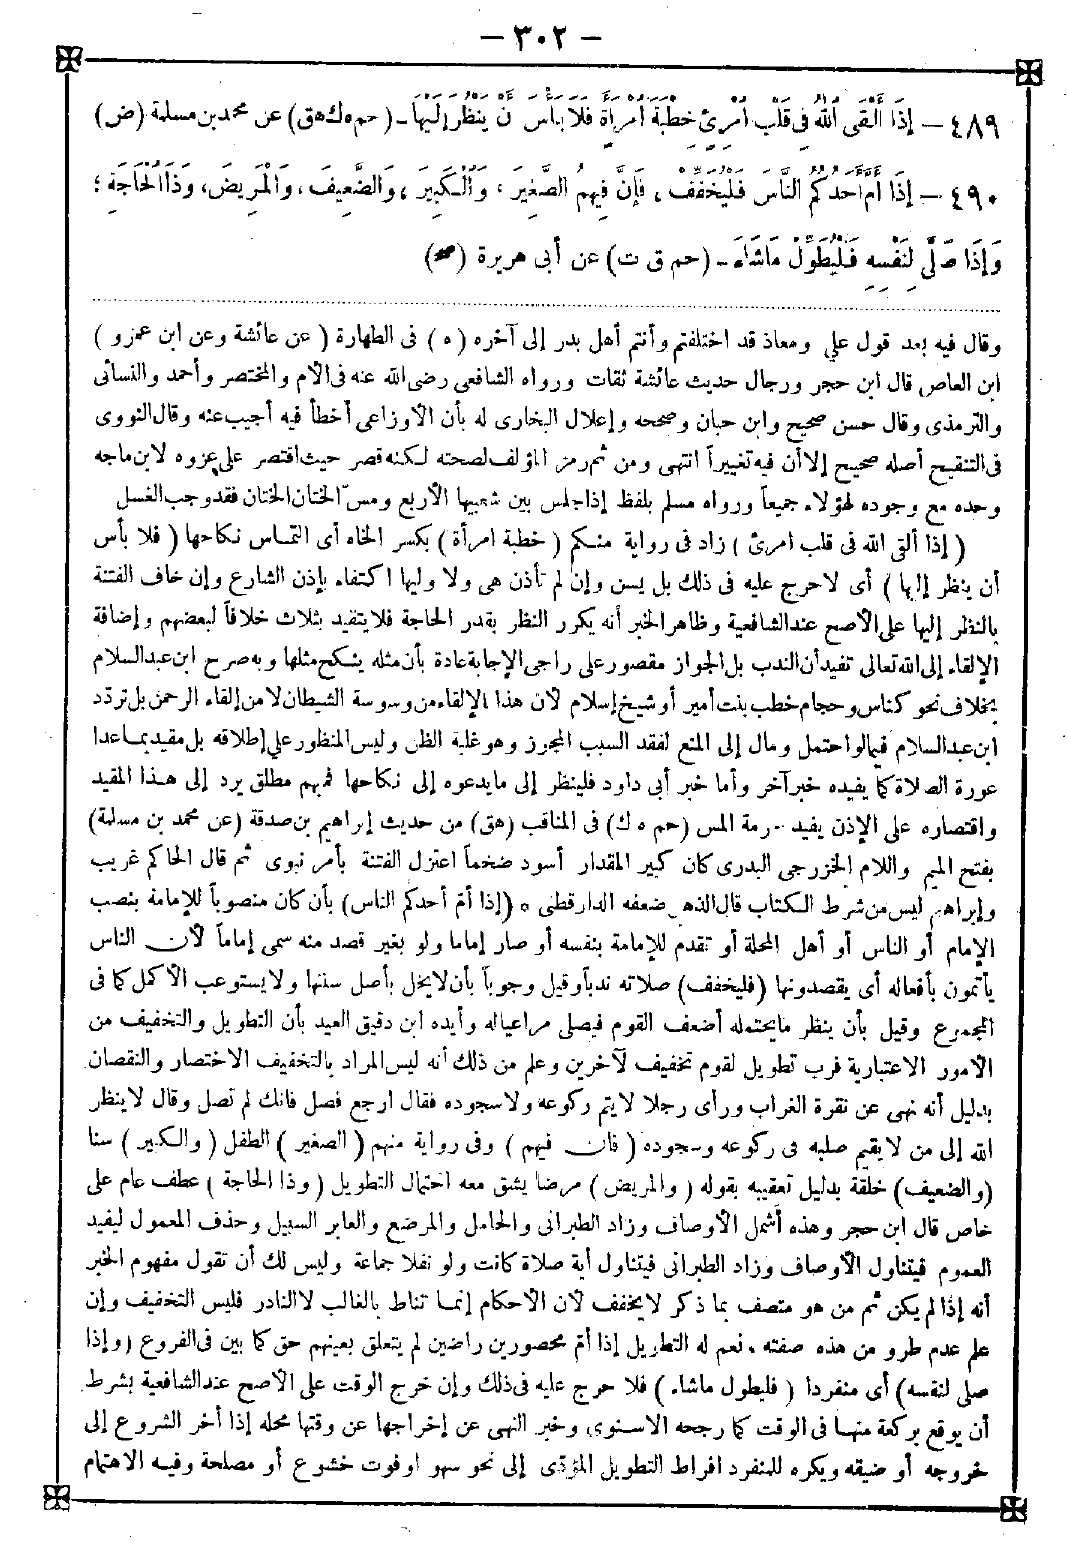 - ٣٠٢ -
٤٨٩ - إِذَا أَلْقَى اللّٰهُ فِي قَلْبِ امْرِئٍ خِطْبَةَ امْرَأَةٍ فَلَا بَأْسَ أَنْ يَنْظُرَ إِلَيْهَا - (حم ه ك هق) عن محمد بن مسلمة (ض)
٤٩٠ - إِذَا أَمَّ أَحَدُكُمُ النَّاسَ فَلْيُخَفِّفْ، فَإِنَّ فِيهِمُ الصَّغِيرَ، وَالْكَبِيرَ، وَالضَّعِيفَ، وَالْمَرِيضَ، وَذَا الْحَاجَةِ؛
وَإِذَا صَلَّى لِنَفْسِهِ فَلْيُطَوِّلْ مَا شَاءَ - (حم ق ت) عن أبى هريرة (صح)
وقال فيه بعد قول على ومعاذ قد اختلفتم وأنتم أهل بدر إلى آخره (ه) فى الطهارة (عن عائشة وعن ابن عمرو)
ابن العاص قال ابن حجر ورجال حديث عائشة ثقات ورواه الشافعى رضى الله عنه فى الأم والمختصر وأحمد والنسائى
والترمذى وقال حسن صحيح وابن حبان وصححه وإعلال البخارى له بأن الأوزاعى أخطأ فيه أجيب عنه وقال النووى
فى التنقيح أصله صحيح إلا أن فيه تغييراً انتهى ومن ثم رمز المؤلف لصحته لكنه قصر حيث اقتصر على عزوه لابن ماجه
وحده مع وجوده لهؤلاء جميعاً ورواه مسلم بلفظ إذا جلس بين شعبها الأربع ومسّ الختان الختان فقد وجب الغسل
(إذا ألقى الله فى قلب امرئ) زاد فى رواية منكم (خطبة امرأة) بكسر الخاء أى التماس نكاحها (فلا بأس
أن ينظر إليها) أى لا حرج عليه فى ذلك بل يسن وإن لم تأذن هى ولا وليها اكتفاء بإذن الشارع وإن خاف الفتنة
بالنظر إليها على الأصح عند الشافعية وظاهر الخبر أنه يكرر النظر بقدر الحاجة فلا يتقيد بثلاث خلافاً لبعضهم وإضافة
الإلقاء إلى الله تعالى تفيد أن الندب بل الجواز مقصور على راجى الإجابة عادة بأن مثله ينكح مثلها وبه صرح ابن عبد السلام
بخلاف نحو كناس وحجام خطب بنت أمير أو شيخ إسلام لأن هذا الإلقاء من وسوسة الشيطان لا من إلقاء الرحمن بل تردّد
ابن عبد السلام فيما لو احتمل ومال إلى المنع لفقد السبب المجوز وهو غلبة الظن وليس المنظور على إطلاقه بل مقيد بما عدا
عورة الصلاة كما يفيده خبر آخر وأما خبر أبى داود فلينظر إلى ما يدعوه إلى نكاحها فمبهم مطلق يرد إلى هذا المقيد
واقتصاره على الإذن يفيد حرمة المس (حم ه ك) فى المناقب (هق) من حديث إبراهيم بن صدقة (عن محمد بن مسلمة)
بفتح الميم واللام الخزرجى البدرى كان كبير المقدار أسود ضخماً اعتزل الفتنة بأمر نبوى ثم قال الحاكم غريب
وإبراهيم ليس من شرط الكتاب قال الذهبى ضعفه الدارقطنى ه (إذا أمّ أحدكم الناس) بأن كان منصوباً للإمامة بنصب
الإمام أو الناس أو أهل المحلة أو تقدم للإمامة بنفسه أو صار إماما ولو بغير قصد منه سمى إماماً لأن الناس
يأتمون بأفعاله أى يقصدونها (فليخفف) صلاته ندباً وقيل وجوباً بأن لا يخل بأصل سننها ولا يستوعب الأكمل كما فى
المجموع وقيل بأن ينظر ما يحتمله أضعف القوم فيصلى مراعياله وأيده ابن دقيق العيد بأن التطويل والتخفيف من
الأمور الاعتبارية فرب تطويل لقوم تخفيف لآخرين وعلم من ذلك أنه ليس المراد بالتخفيف الاختصار والنقصان
بدليل أنه نهى عن نقرة الغراب ورأى رجلا لا يتم ركوعه ولا سجوده فقال ارجع فصل فانك لم تصل وقال لا ينظر
الله إلى من لا يقيم صلبه فى ركوعه وسجوده (فان فيهم) وفى رواية منهم (الصغير) الطفل (والكبير) سنا
(والضعيف) خلقة بدليل تعقيبه بقوله (والمريض) مرضا يشق معه احتمال التطويل (وذا الحاجة) عطف عام على
خاص قال ابن حجر وهذه أشمل الأوصاف وزاد الطبرانى والحامل والمرضع والعابر السبيل وحذف المعمول ليفيد
العموم فيتناول الأوصاف وزاد الطبرانى فيتناول أية صلاة كانت ولو نفلا جماعة وليس لك أن تقول مفهوم الخبر
أنه إذا لم يكن ثم من هو متصف بما ذكر لا يخفف لأن الأحكام إنما تناط بالغالب لا النادر فليس التخفيف وإن
علم عدم طرو من هذه صفته . نعم له التطويل إذا أمّ محصورين راضين لم يتعلق بعينهم حق كما بين فى الفروع (وإذا
صلى لنفسه) أى منفردا (فليطول ماشاء) فلا حرج عليه فى ذلك وإن خرج الوقت على الأصح عند الشافعية بشرط
أن يوقع بركعة منها فى الوقت كما رجحه الاسنوى وخبر النهى عن إخراجها عن وقتها محله إذا أخر الشروع إلى
خروجه أو ضيقه ويكره للمنفرد افراط التطويل المؤدّى إلى نحو سهو او فوت خشوع أو مصلحة وفيه الاهتمام